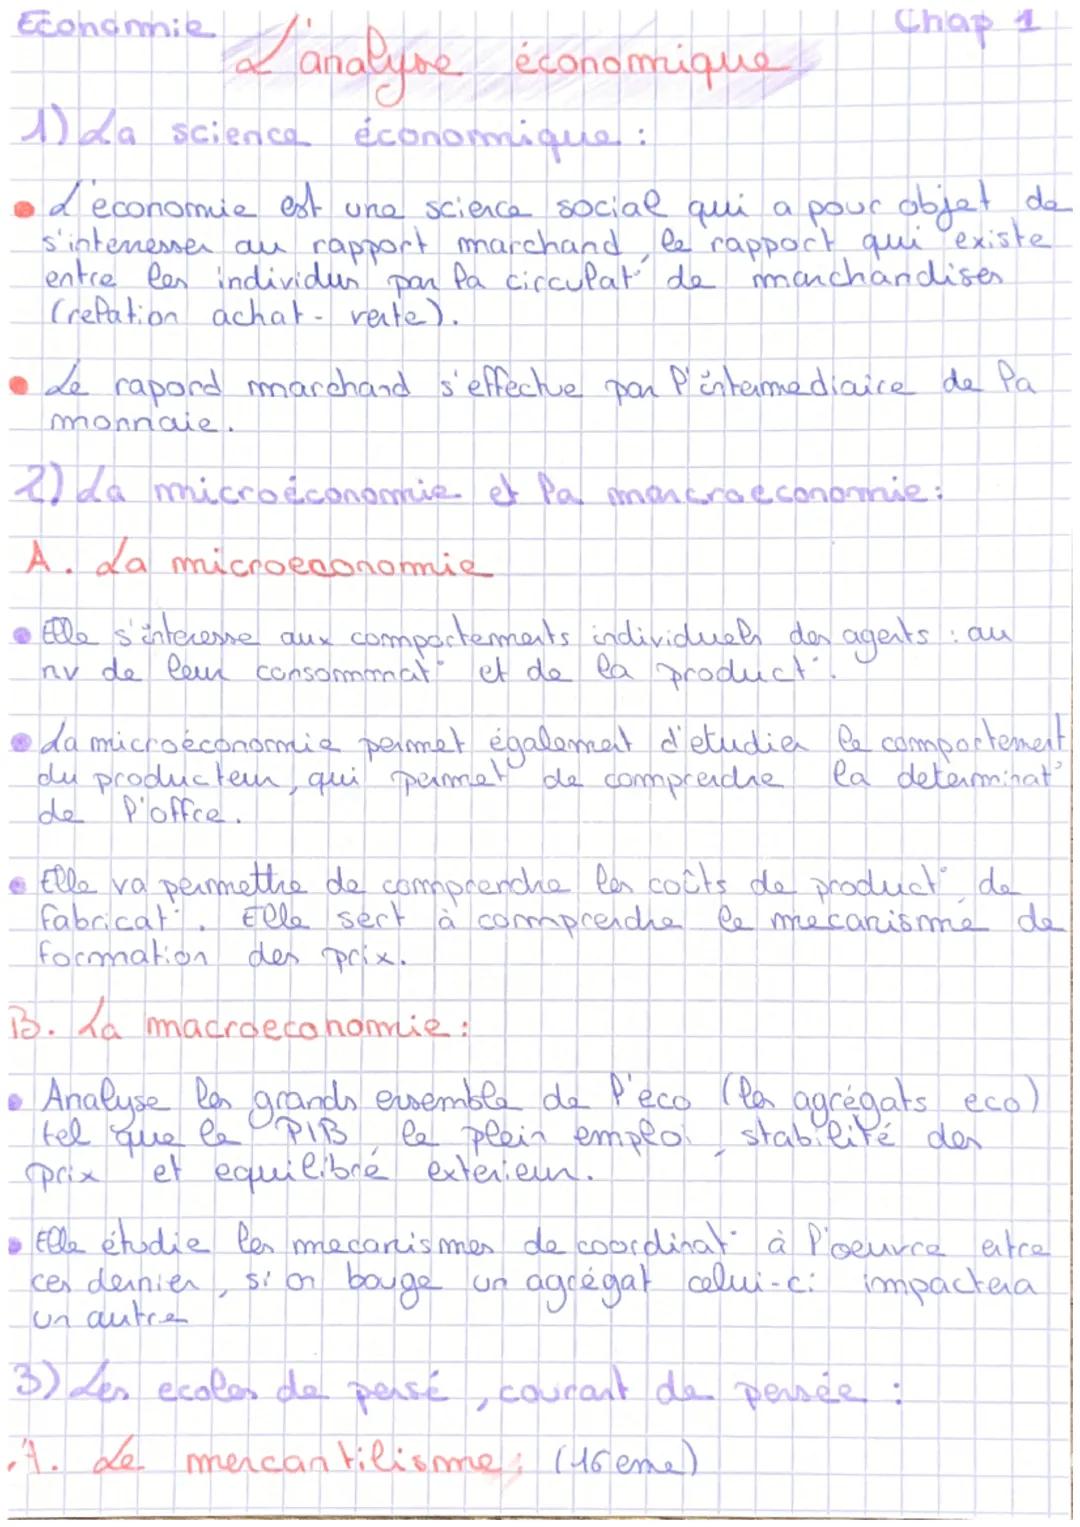 Economie
Chap 1
L'analyse économique
1) La science économique :
L'economie est une science social qui a pour objet de
s'interresser au rapport marchand, le rapport qui existe
entre les individus par la circulat° de marchandises
(relation achat - vente).
Le rapord marchand s'effectue par l'intermediaire de la
monnaie.
2) La microéconomie et la mancroeconomie :
A. La microeconomie
Elle s'interesse aux comportements individuels des agents : au
nv de leur consommat° et de la product°.
La microéconomie permet également d'etudier le comportement
du producteur, qui permet de comprendre la determinat°
de l'offre.
Elle va permettre de comprendre les coûts de product° de
fabricat°. Elle sert à comprendre le mecanisme de
formation des prix.
B. La macroeconomie :
Analyse les grands ensemble de l'éco (les agrégats eco)
tel que le PIB, le plein emploi, stabilité des
prix et equilibré exterieur.
Elle étudie les mecanismes de coordinat° à l'oeuvre entre
ces dernier, si on bouge un agrégat celui-ci impactera
un autre
3) Les ecoles de pensé, courant de pensée :
A. Le mercantilisme : (16eme)